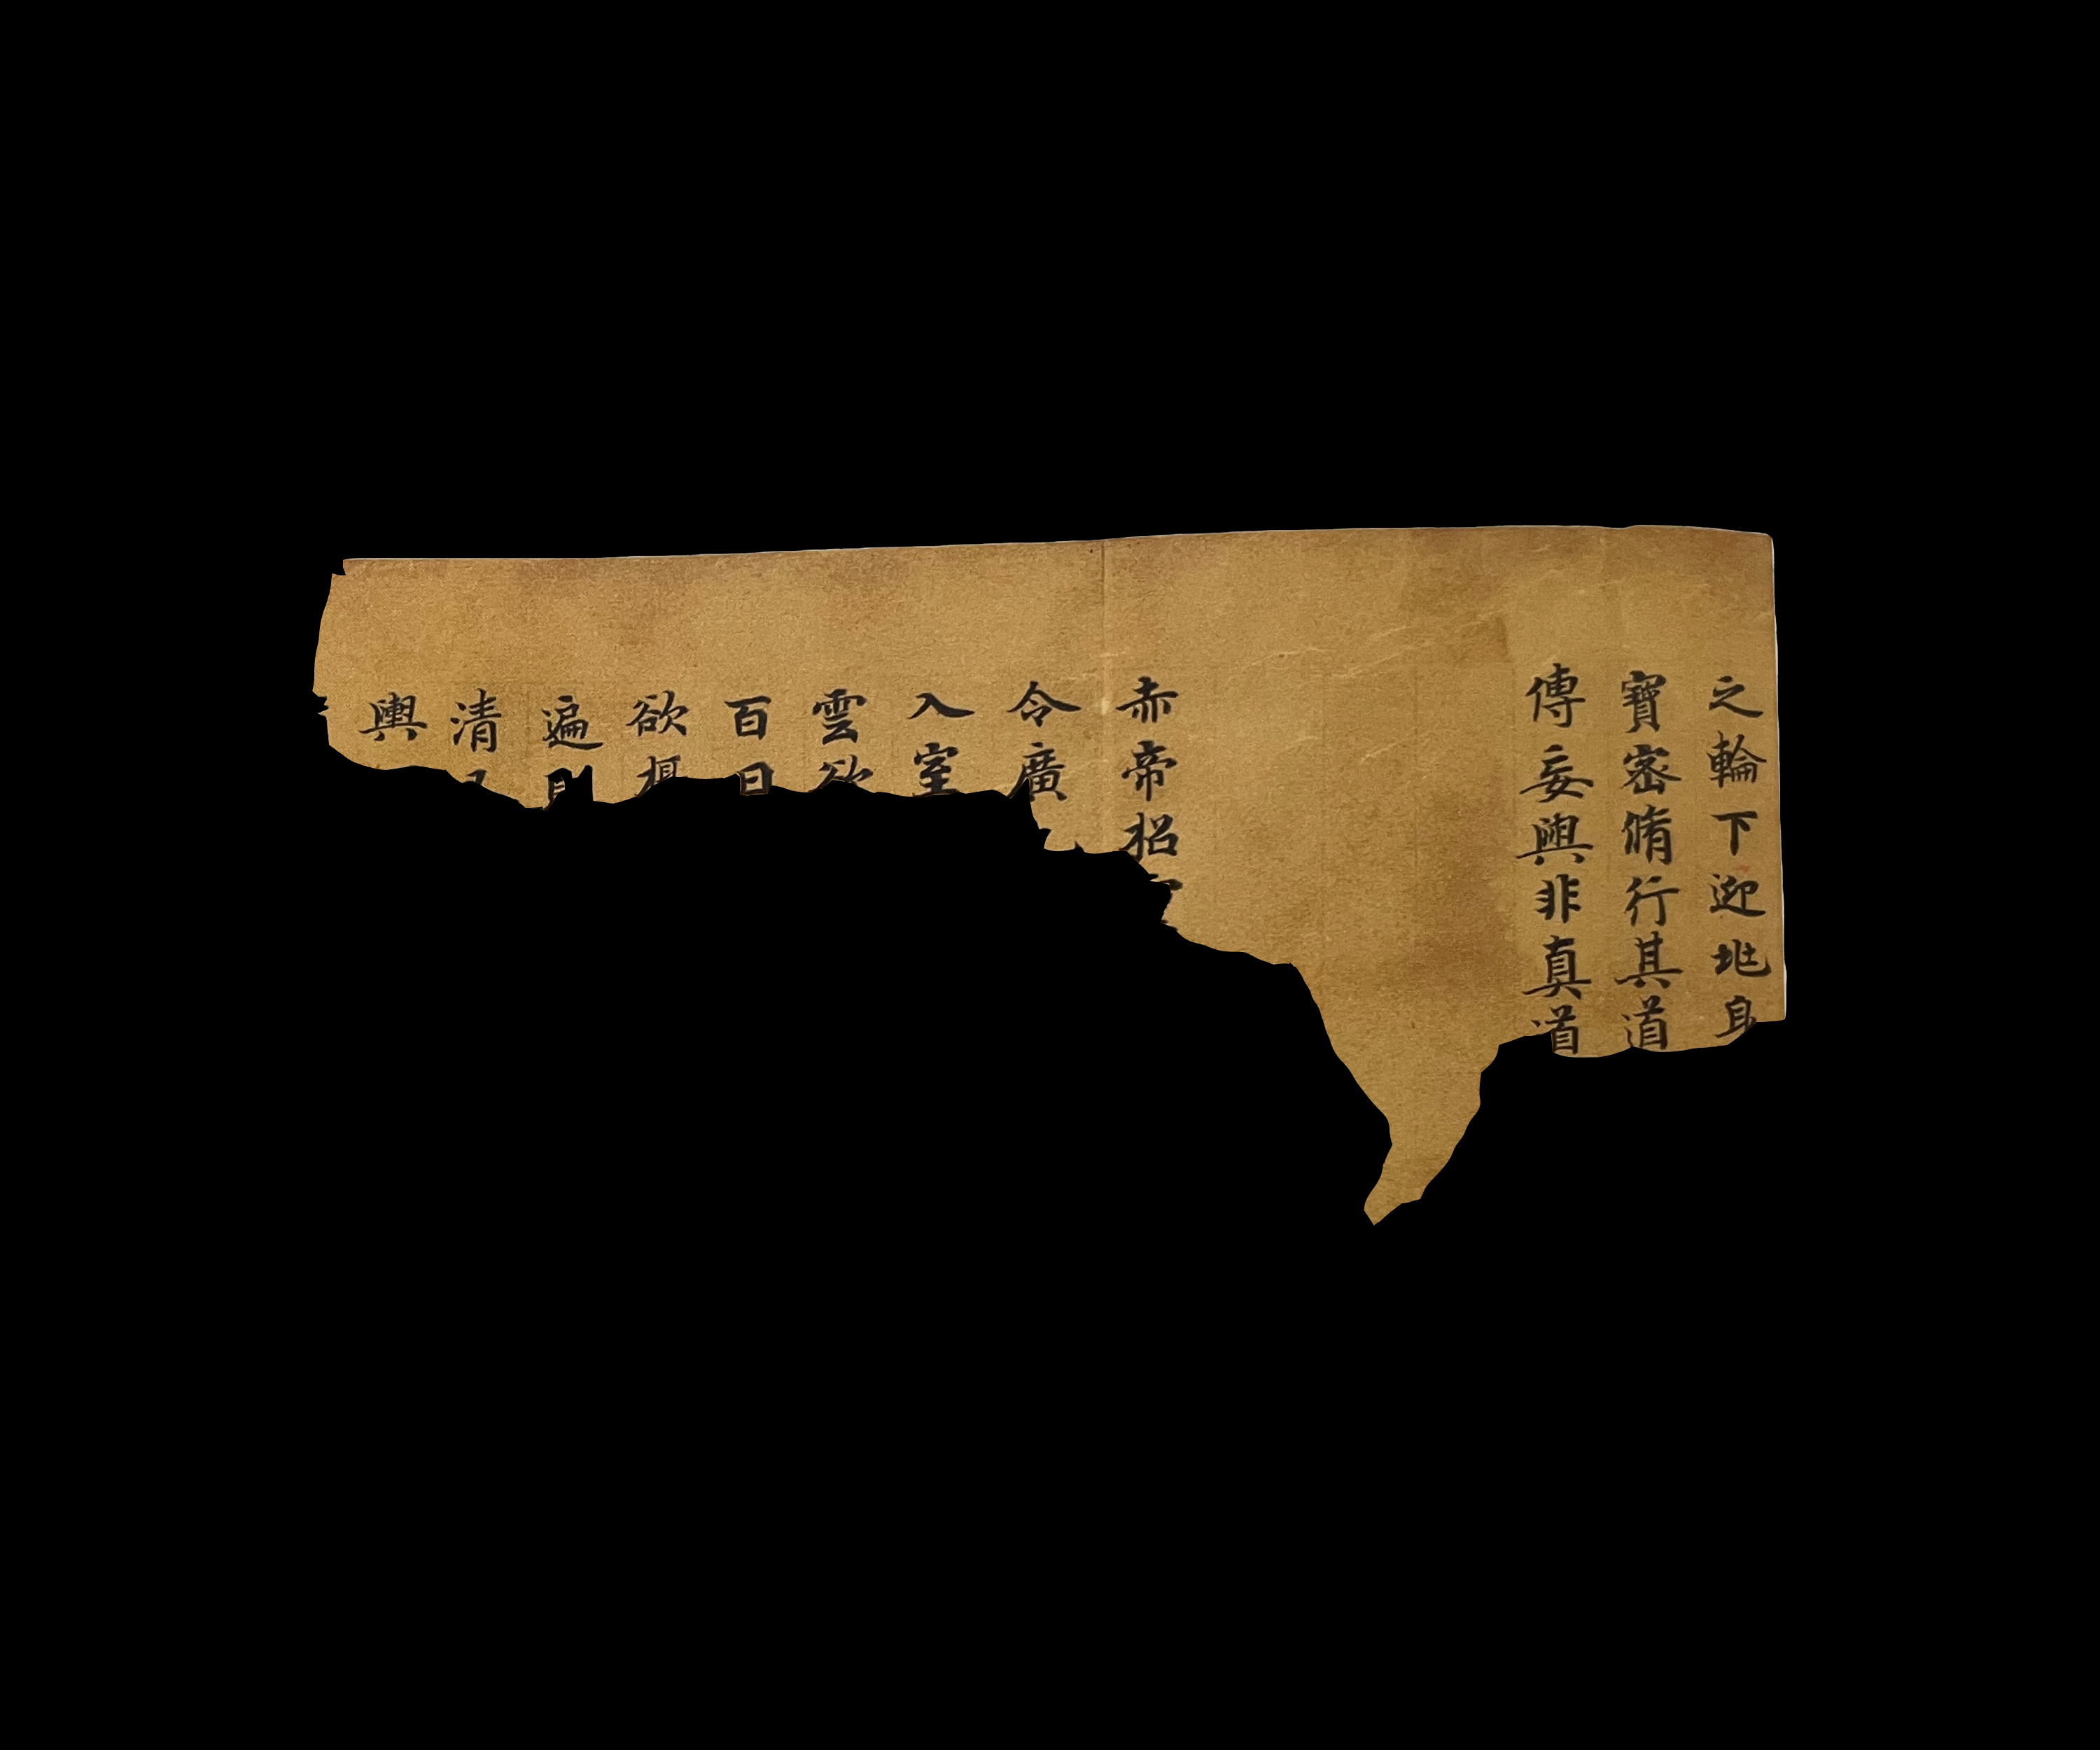 之輪下迎兆身
寶密脩行其道
傳妄與非真道
赤帝招
令廣
入室
雲欲
百日
欲
遍
清
輿